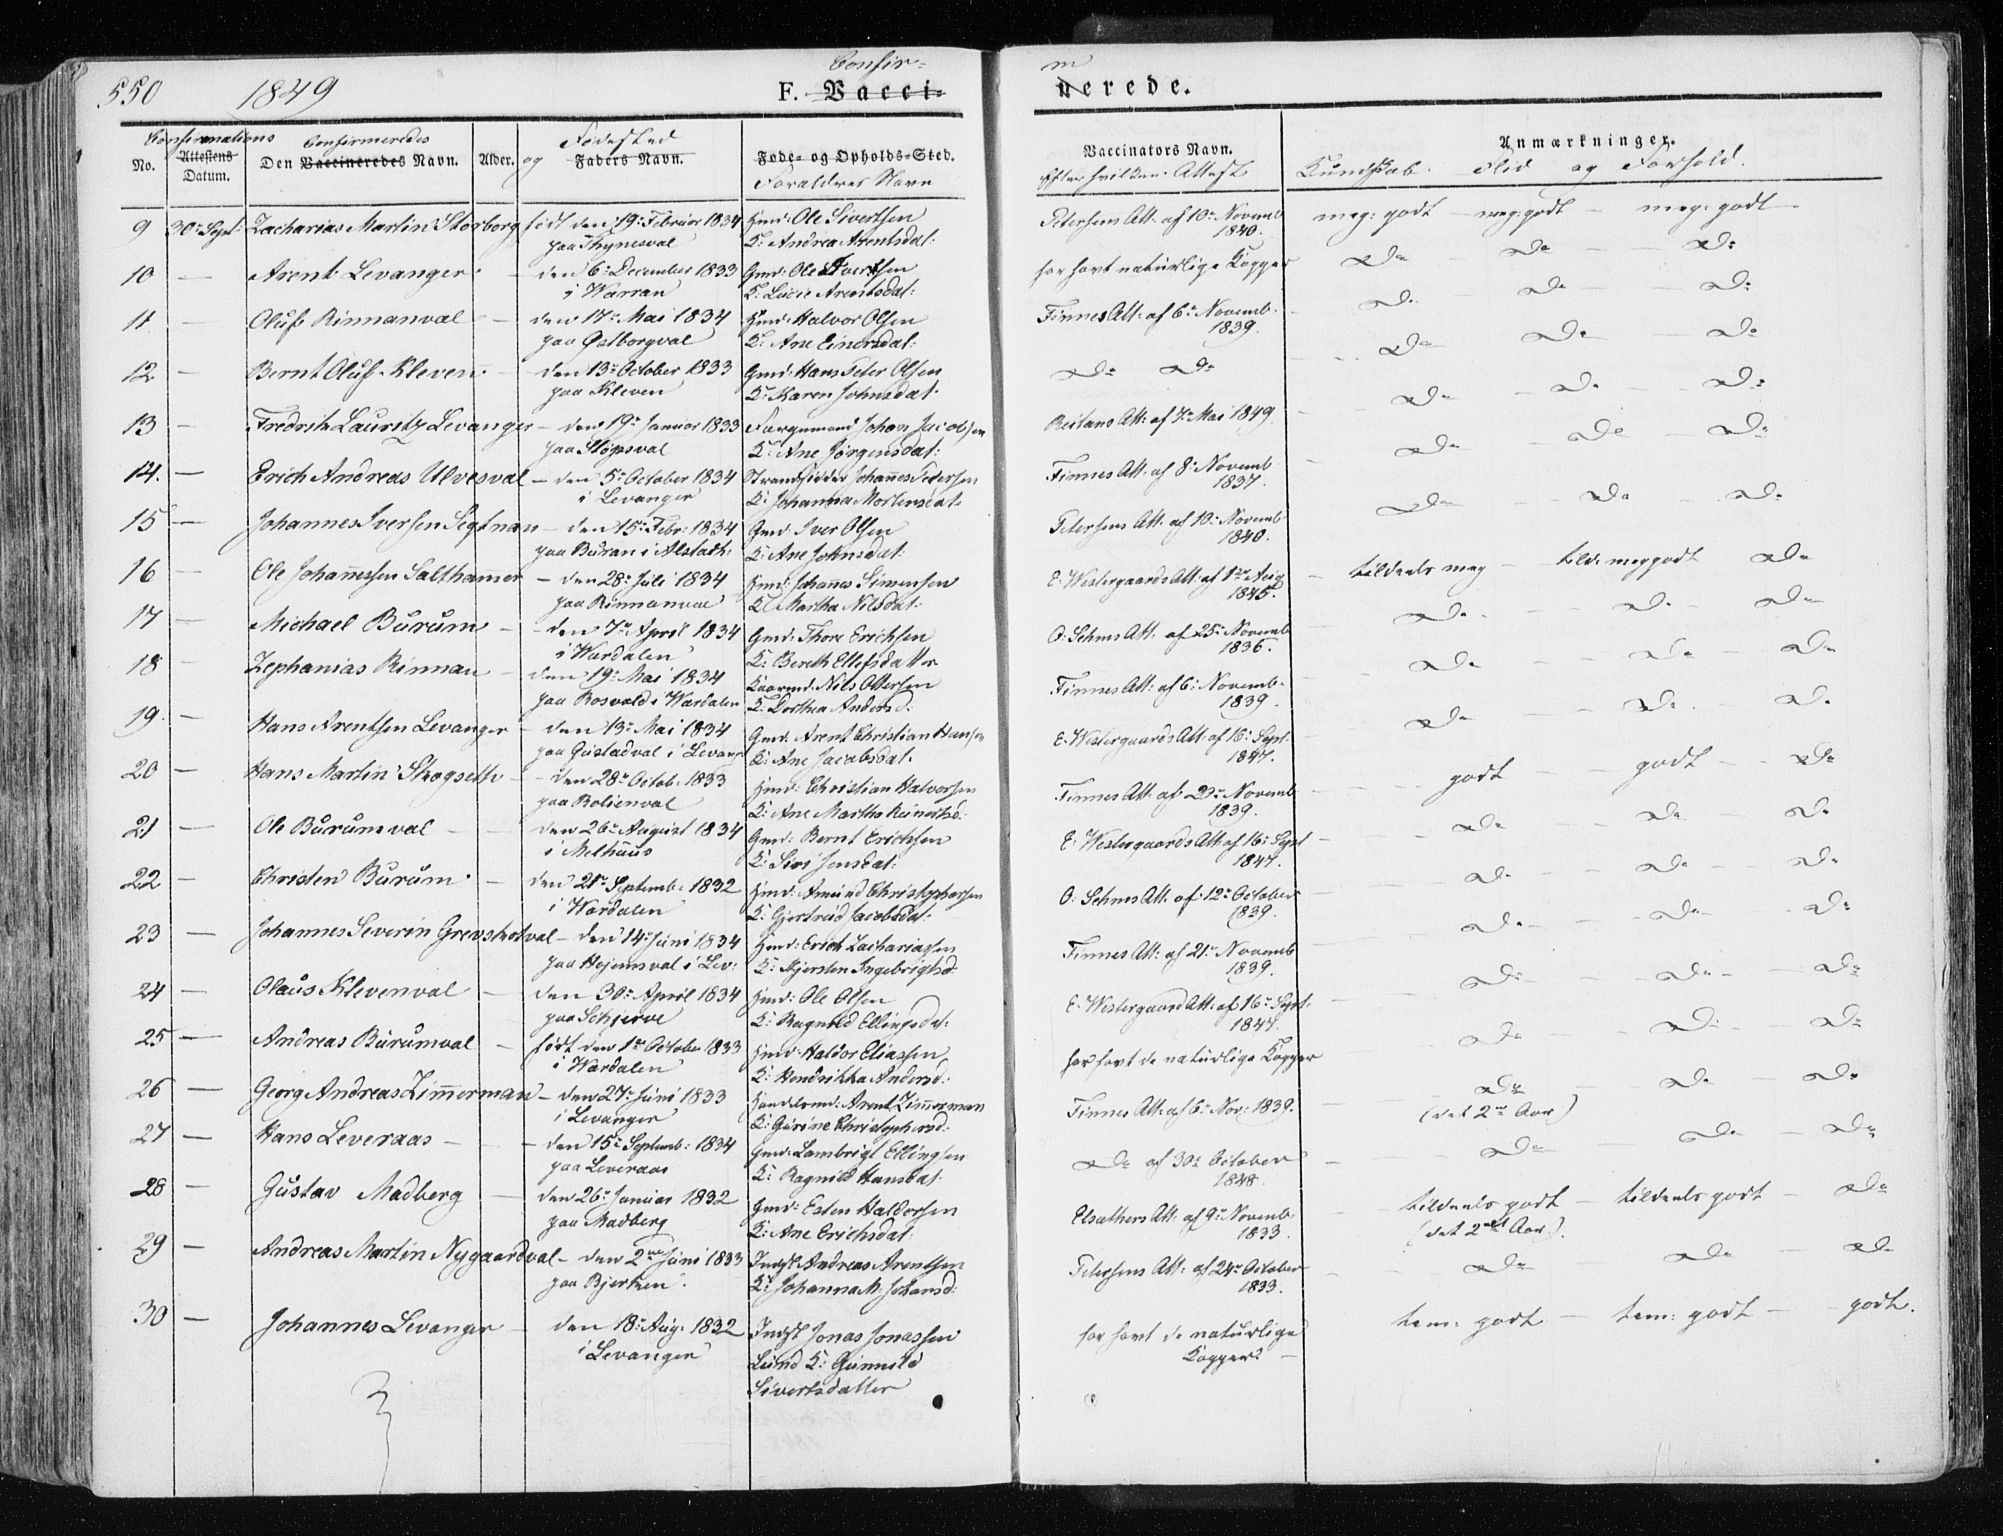 550 1849 Confir= m
F. Vacci= nerede.
Confirmations Confirmeredes Fødested
No. Attestens Datum. Den Vaccineredes Navn. Alder. og Faders Navn. Føde= og Opholds=Sted. Vaccinators Navn. Anmærkninger.
Forældres Navn efter hvilken Attest Kundskab. Flid og Forhold.
9 30te Sept: Zacharias Martin Storborg født den 19de Februar 1834 Huusmd: Ole Sivertsen Petersens Att: af 10de Novemb meg: godt meg: godt meg: godt
paa Thynesval K: Andrea Arentsdat: 1840.
10 — Arent Levanger — den 6te December 1833 Gmd: Ole Sivertsen har havt naturlige Kopper do do do
i Værran K: Lucie Arentsdat:
11 — Oluf Rinnanval — den 17de Mai 1834 Huusmd: Halvor Olsen Finnes Att: af 6te Novemb. do do do
paa Østborgval K: Ane Einersdat: 1839.
12 — Bernt Oluf Kleven — den 13de October 1833 Gmd: Hans Peter Olsen do do do do do
paa Kleven K: Karen Johnsdat.
13 — Fredrik Lauritz Levanger — den 19de Januar 1833 Færgemand Johan Jacobsen Reitans Att: af 7de Mai 1849. do do do
paa Stöpsval K: Ane Jörgensdat:
14. — Erich Andreas Ulvesval — den 5te October 1834 Strandsidder Johannes Pedersen Finnes Att: af 8de Novemb do do do
i Levanger K: Johanna Mortensdat. 1837.
15 — Johannes Iversen Segtnan — den 15de Febr: 1834 Gmd Iver Olsen Petersens Att: af 10de Novemb do do do
paa Buran i Alstadh: K: Ane Johnsdat: 1840.
16 — Ole Johannesen Salthamer — den 28de Juli 1834 Huusmd: Johannes Simensen E: Westergaards Att: af 1ste Aug tildeels meg — tild: meg godt do
paa Rinnanval K: Martha Nilsdat: 1845.
17 — Michael Burum — den 7de April 1834 Gmd: Thore Erichsen O: Sehms Att: af 25de Novemb do do do
i Værdalen K: Bereth Ellefsdatter 1836.
18 — Zephanias Rinnan — den 19de Mai 1834 Kaarmd: Nils Ottersen Finnes Att: af 6te Novemb. do do do
paa Rosvold i Værdalen K: Dorthea Andersd: 1839.
19. — Hans Arentsen Levanger — den 13de Mai 1834 Gmd: Arent Christian Hansen E. Westergaards Att: af 16de Sept. do do do
paa Gustadval i Levang K: Ane Jacobsdat. 1847.
20 — Hans Martin Skogseth — den 28de Octob: 1833 Huusmd: Christian Halvorsen Finnes Att: af 23de Novemb godt godt do
paa Bolienval K: Ane Martha Reinertsd: 1839.
21 — Ole Burumval — den 26de August 1834 Gmd: Bernt Erichsen E: Westergaards Att af 16de Sept do do do
i Melhuus K: Siri Jensdat: 1847.
22 — Christen Burum — den 21de Septemb: 1832 Huusmd: Amund Christophersen O: Sehms Att: af 12te October do do do
i Værdalen K: Gjertrud Jacobsdat: 1839.
23 — Johannes Severin Grevskotval — den 14de Juni 1834 Huusmd: Erich Zachariassen Finnes Att: af 21de Novemb do do do
paa Hojemsval i Lev: K: Kjersten Ingebrigtsd: 1839.
24 — Olaus Klevenval — den 30te April 1834 Huusmd: Ole Olsen E: Westergaard Att: af 16de Sept. do do do
paa Schjerve K: Ragnild Ellingsdat: 1847.
25 — Andreas Burumval — født den 1ste October 1833 Huusmd: Haldor Eliassen har havt de naturlige Kopper do do do
i Værdalen K: Hendrikka Andersd:
26 — Georg Andreas Zimmerman — den 27de Juni 1833 Handelsmd: Arent Zimmerman Finnes Att: af 6te Nov: 1839. do do do
i Levanger K: Gurine Christophersd: (det 2det Aar)
27 — Hans Leveraas — den 15de Septemb: 1834 Gmd: Lambrigt Ellingsen do af 30te October do do do
paa Leveraas K: Ragnild Hansdat. 1848.
28 — Gustav Madberg — den 26de Januar 1832 Gmd: Esten Haldorsen Elsathers Att: af 9de Novemb tildeels godt — tildeels godt do
paa Madberg K: Ane Erichsdat: 1833. (det 2det Aar).
29 — Andreas Martin Nygaardval — den 2den Juni 1833 Indst Andreas Arentsen Petersens Att: af 24de October do do do
paa Bjerken. K: Johanna M: Johansd: 1833.
30 — Johannes Levanger — den 18de Aug: 1832 Indst Jonas Jonassen har havt de naturlige tem: godt — tem: godt — godt.
i Levanger Lund K: Gunnild Kopper.
Sivertsdatter